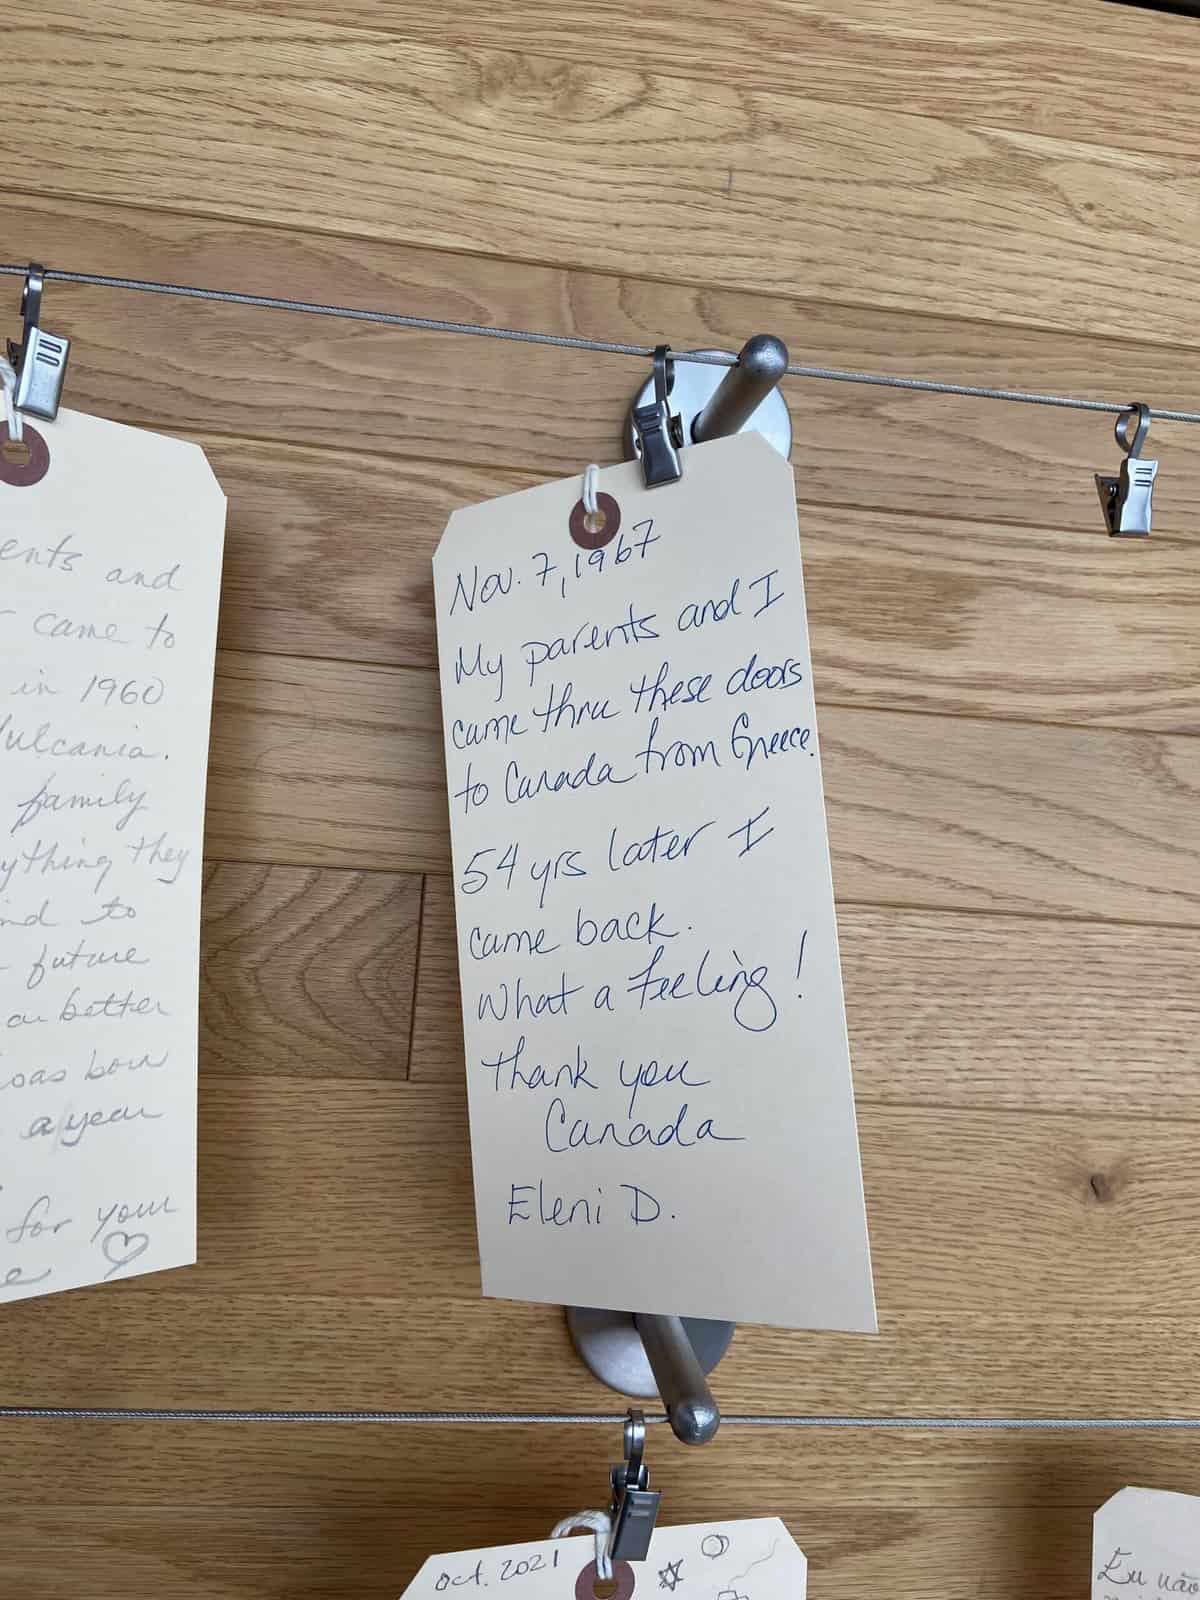 ents and
came to
in 1960
Vulcania.
family
ything they
nd to
future
a better
was born
a year
for your
e ♡
Nov. 7, 1967
My parents and I
came thru these doors
to Canada from Greece.
54 yrs later I
came back.
What a feeling!
Thank you
Canada
Eleni D.
Oct. 2021
Eu não